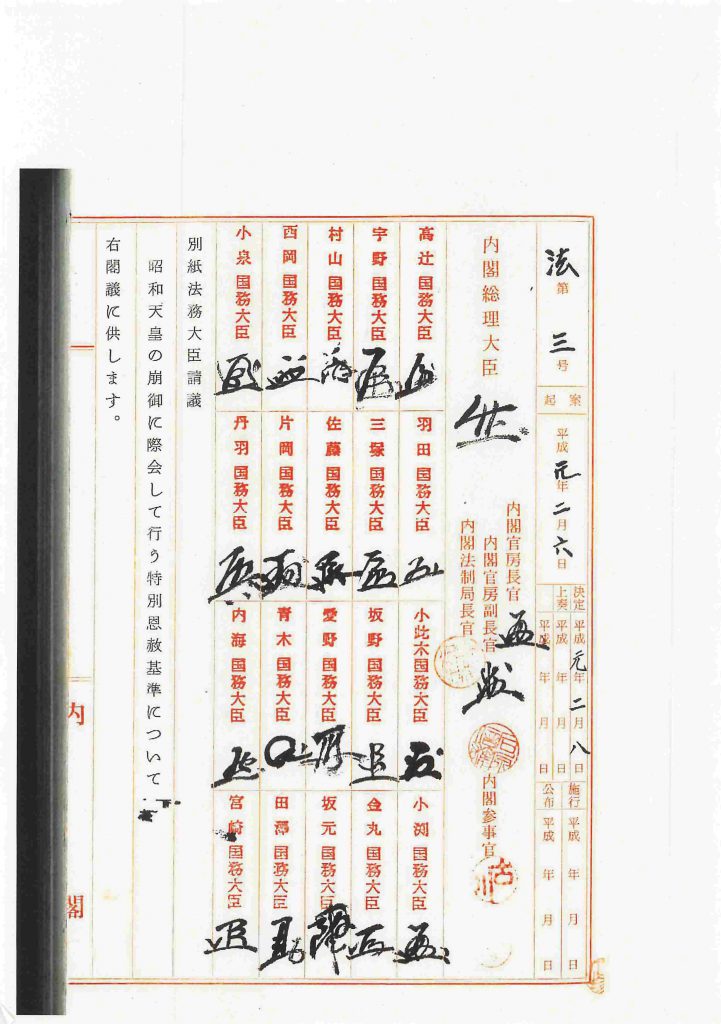 法第三号
起案 平成元年二月六日
決定 平成元年二月八日
上奏 平成 年 月 日
施行 平成 年 月 日
公布 平成 年 月 日
内閣総理大臣
内閣官房長官
内閣官房副長官
内閣法制局長官
内閣参事官
古川
高辻国務大臣
宇野国務大臣
村山国務大臣
西岡国務大臣
小泉国務大臣
羽田国務大臣
三塚国務大臣
佐藤国務大臣
片岡国務大臣
丹羽国務大臣
小此木国務大臣
坂野国務大臣
愛野国務大臣
青木国務大臣
内海国務大臣
小渕国務大臣
金丸国務大臣
坂元国務大臣
田澤国務大臣
宮崎国務大臣
別紙法務大臣請議
昭和天皇の崩御に際会して行う特別恩赦基準について
右閣議に供します。
内閣